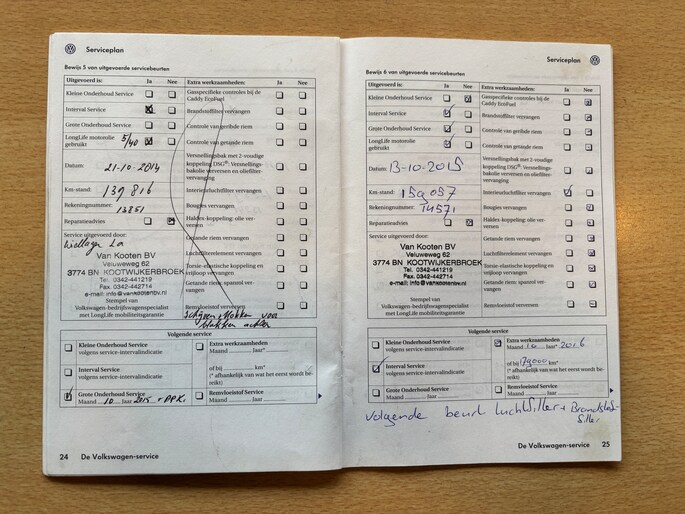 Serviceplan
Bewijs 5 van uitgevoerde servicebeurten
Uitgevoerd is: Ja Nee Extra werkzaamheden: Ja Nee
Kleine Onderhoud Service
Gasspecifieke controles bij de
Caddy EcoFuel
Interval Service
Brandstoffilter vervangen
Grote Onderhoud Service
Controle van geribde riem
LongLife motorolie
gebruikt 5/40
Controle van getande riem
Datum: 21-10-2014
Versnellingsbak met 2-voudige
koppeling DSG®: Versnellings-
bakolie verversen en oliefilter-
vervanging
Km-stand: 139 816
Interieurluchtfilter vervangen
Rekeningnummer: 13851
Bougies vervangen
Reparatieadvies
Haldex-koppeling: olie ver-
versen
Service uitgevoerd door:
Getande riem vervangen
Van Kooten BV
Veluweweg 62
3774 BN KOOTWIJKERBROEK
Tel. 0342-441219
Fax. 0342-442714
e-mail: info@vankootenbv.nl
Luchtfilterelement vervangen
Torsie-elastische koppeling en
vrijloop vervangen
Getande riem, spanrol ver-
vangen
Stempel van
Volkswagen-bedrijfswagenspecialist
met LongLife mobiliteitsgarantie
Remvloeistof verversen
Schijven + blokken voor
blokken achter
Volgende service
Kleine Onderhoud Service
volgens service-intervalindicatie
Extra werkzaamheden
Maand Jaar*
Interval Service
volgens service-intervalindicatie
of bij km*
(* afhankelijk van wat het eerst wordt be-
reikt)
Grote Onderhoud Service
Maand 10 Jaar 2015 + APK
Remvloeistof Service
Maand Jaar
24 De Volkswagen-service
Serviceplan
Bewijs 6 van uitgevoerde servicebeurten
Uitgevoerd is: Ja Nee Extra werkzaamheden: Ja Nee
Kleine Onderhoud Service
Gasspecifieke controles bij de
Caddy EcoFuel
Interval Service
Brandstoffilter vervangen
Grote Onderhoud Service
Controle van geribde riem
LongLife motorolie
gebruikt
Controle van getande riem
Datum: 13-10-2015
Versnellingsbak met 2-voudige
koppeling DSG®: Versnellings-
bakolie verversen en oliefilter-
vervanging
Km-stand: 159 057
Interieurluchtfilter vervangen
Rekeningnummer: 14571
Bougies vervangen
Reparatieadvies
Haldex-koppeling: olie ver-
versen
Service uitgevoerd door:
Getande riem vervangen
Van Kooten BV
Veluweweg 62
3774 BN KOOTWIJKERBROEK
Tel. 0342-441219
Fax. 0342-442714
e-mail: info@vankootenbv.nl
Luchtfilterelement vervangen
Torsie-elastische koppeling en
vrijloop vervangen
Getande riem, spanrol ver-
vangen
Stempel van
Volkswagen-bedrijfswagenspecialist
met LongLife mobiliteitsgarantie
Remvloeistof verversen
Volgende service
Kleine Onderhoud Service
volgens service-intervalindicatie
Extra werkzaamheden
Maand 10 Jaar* 2016
Interval Service
volgens service-intervalindicatie
of bij 179000 km*
(* afhankelijk van wat het eerst wordt be-
reikt)
Grote Onderhoud Service
Maand Jaar
Remvloeistof Service
Maand Jaar
Volgende beurt luchtfilter + Brandstof
filter
De Volkswagen-service 25